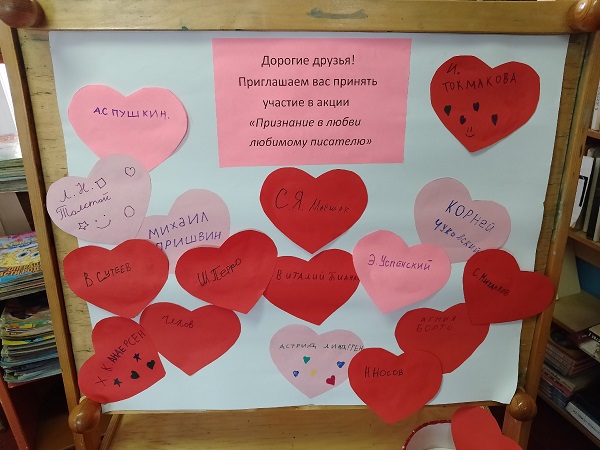 Дорогие друзья!
Приглашаем вас принять
участие в акции
«Признание в любви
любимому писателю»
И.
ТОКМАКОВА
АС ПУШКИН.
Л. Н.
Толстой
МИХАИЛ
ПРИШВИН
С Я Маршак
КОРНЕЙ
ЧУКОВСКИЙ
В. СУТЕЕВ
Ш. Перро
ВИТАЛИЙ БИАНКИ
Э. Успенский
С. Михалков
Х. К. АНДЕРСЕН
Чехов
АСТРИД ЛИНДГРЕН
Н НОСОВ
АГНИЯ
БАРТО